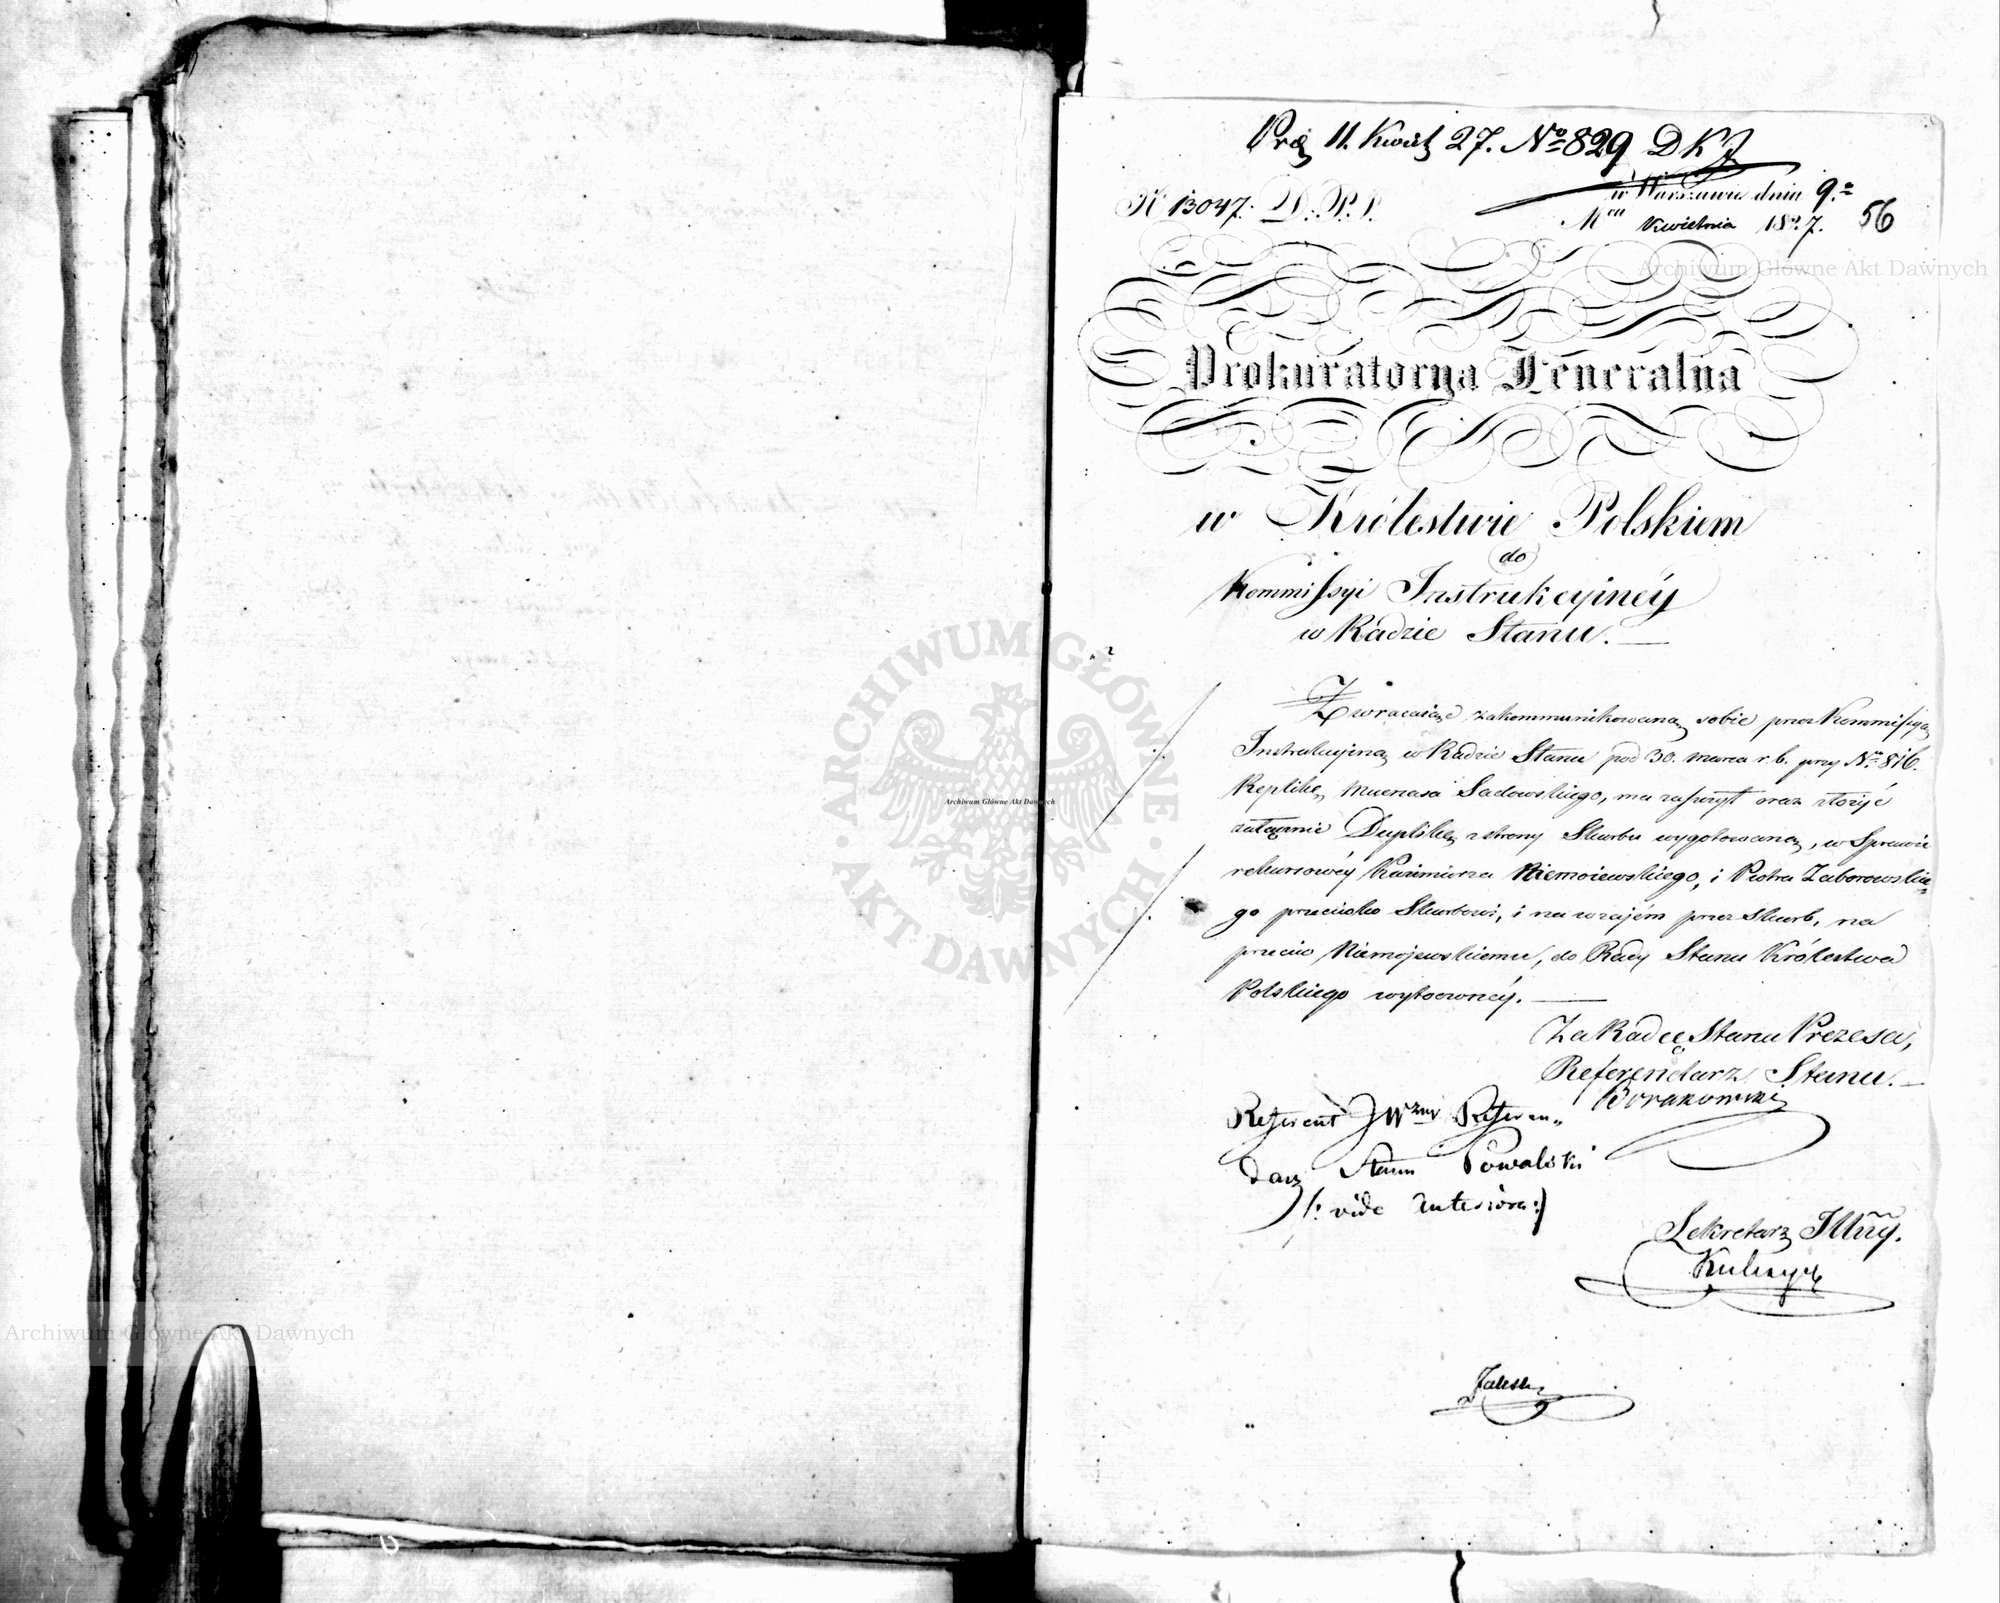 Prez 11. Kwiet 27. No 829 DKJ
N 13047. D. P. P.
w Warszawie dnia 9.
Mca Kwietnia 1827.
56
Prokuratorya Generalna
w Królestwie Polskiem
do
Kommissyi Instrukcyinéy
w Radzie Stanu.
Zwracaiąc zakommunikowaną sobie przez Kommissyą
Instrukcyiną w Radzie Stanu pod 30. Marca r. b. przy No. 816.
Replikę Mecenasa Sadowskiego, ma zaszczyt oraz złożyć
załącznie Duplikę z strony Skarbu wygotowaną, w Sprawie
rekursowéy Kazimierza Niemoiewskiego, i Piotra Zaborowskie-
go przeciwko Skarbowi, i na wzajém przez Skarb, na
przeciw Niemojewskiemu, do Rady Stanu Królestwa
Polskiego wytoczonéy.
Za Radcę Stanu Prezesa,
Referendarz Stanu.
Borakowski
Referent JWzny Referen-
darz Stanu Powalski
/: vide anteriora :/
Sekretarz Jlny.
Kulczycki
Zaleski
Archiwum Główne Akt Dawnych
ARCHIWUM GŁÓWNE AKT DAWNYCH
Archiwum Główne Akt Dawnych
Archiwum Główne Akt Dawnych